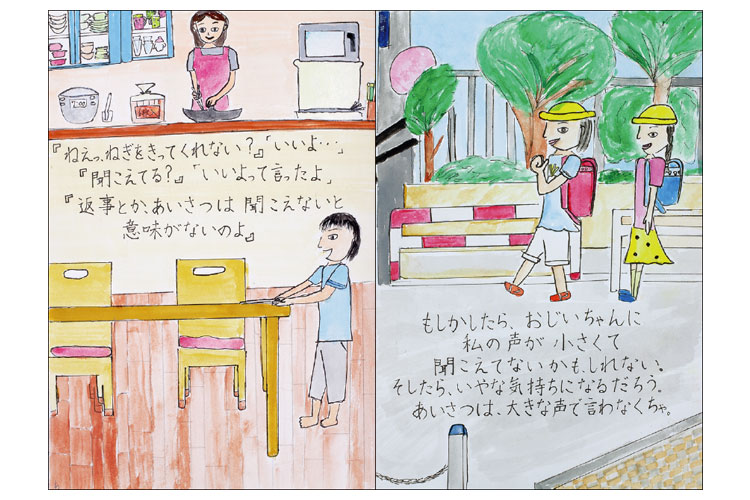 『ねえっ、ねぎをきってくれない？』「いいよ…」
『聞こえてる？』「いいよって言ったよ」
『返事とか、あいさつは 聞こえないと
意味がないのよ』
もしかしたら、おじいちゃんに
私の声が 小さくて
聞こえてないかも、しれない。
そしたら、いやな気持ちになるだろう。
あいさつは、大きな声で言わなくちゃ。